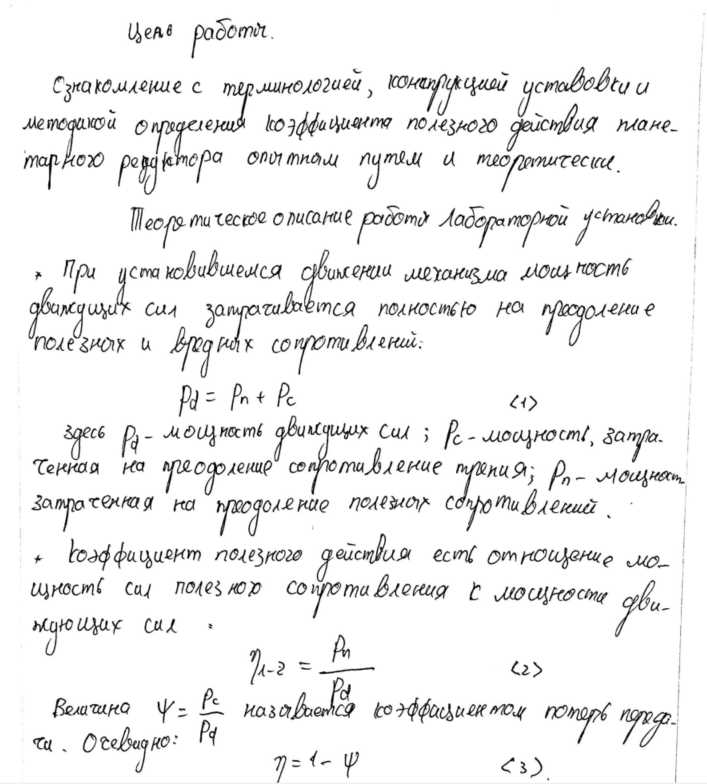 Цель работы.
Ознакомление с терминологией, конструкцией установки и
методикой определения коэффициента полезного действия плане-
тарного редуктора опытным путем и теоретически.
Теоретическое описание работы лабораторной установки.
* При установившемся движении механизма мощность
движущих сил затрачивается полностью на преодоление
полезных и вредных сопротивлений:
Pd = Pn + Pc <1>
здесь Pd - мощность движущих сил ; Pc - мощность, затра-
ченная на преодоление сопротивление трения; Pn - мощност
затраченная на преодоление полезных сопротивлений.
* Коэффициент полезного действия есть отнощение мо-
щность сил полезного сопротивления к мощности дви-
ждующих сил :
η1-2 = Pn / Pd <2>
Величина ψ = Pc / Pd называется коэффициентом потерь переда-
чи. Очевидно:
η = 1 - ψ <3>.